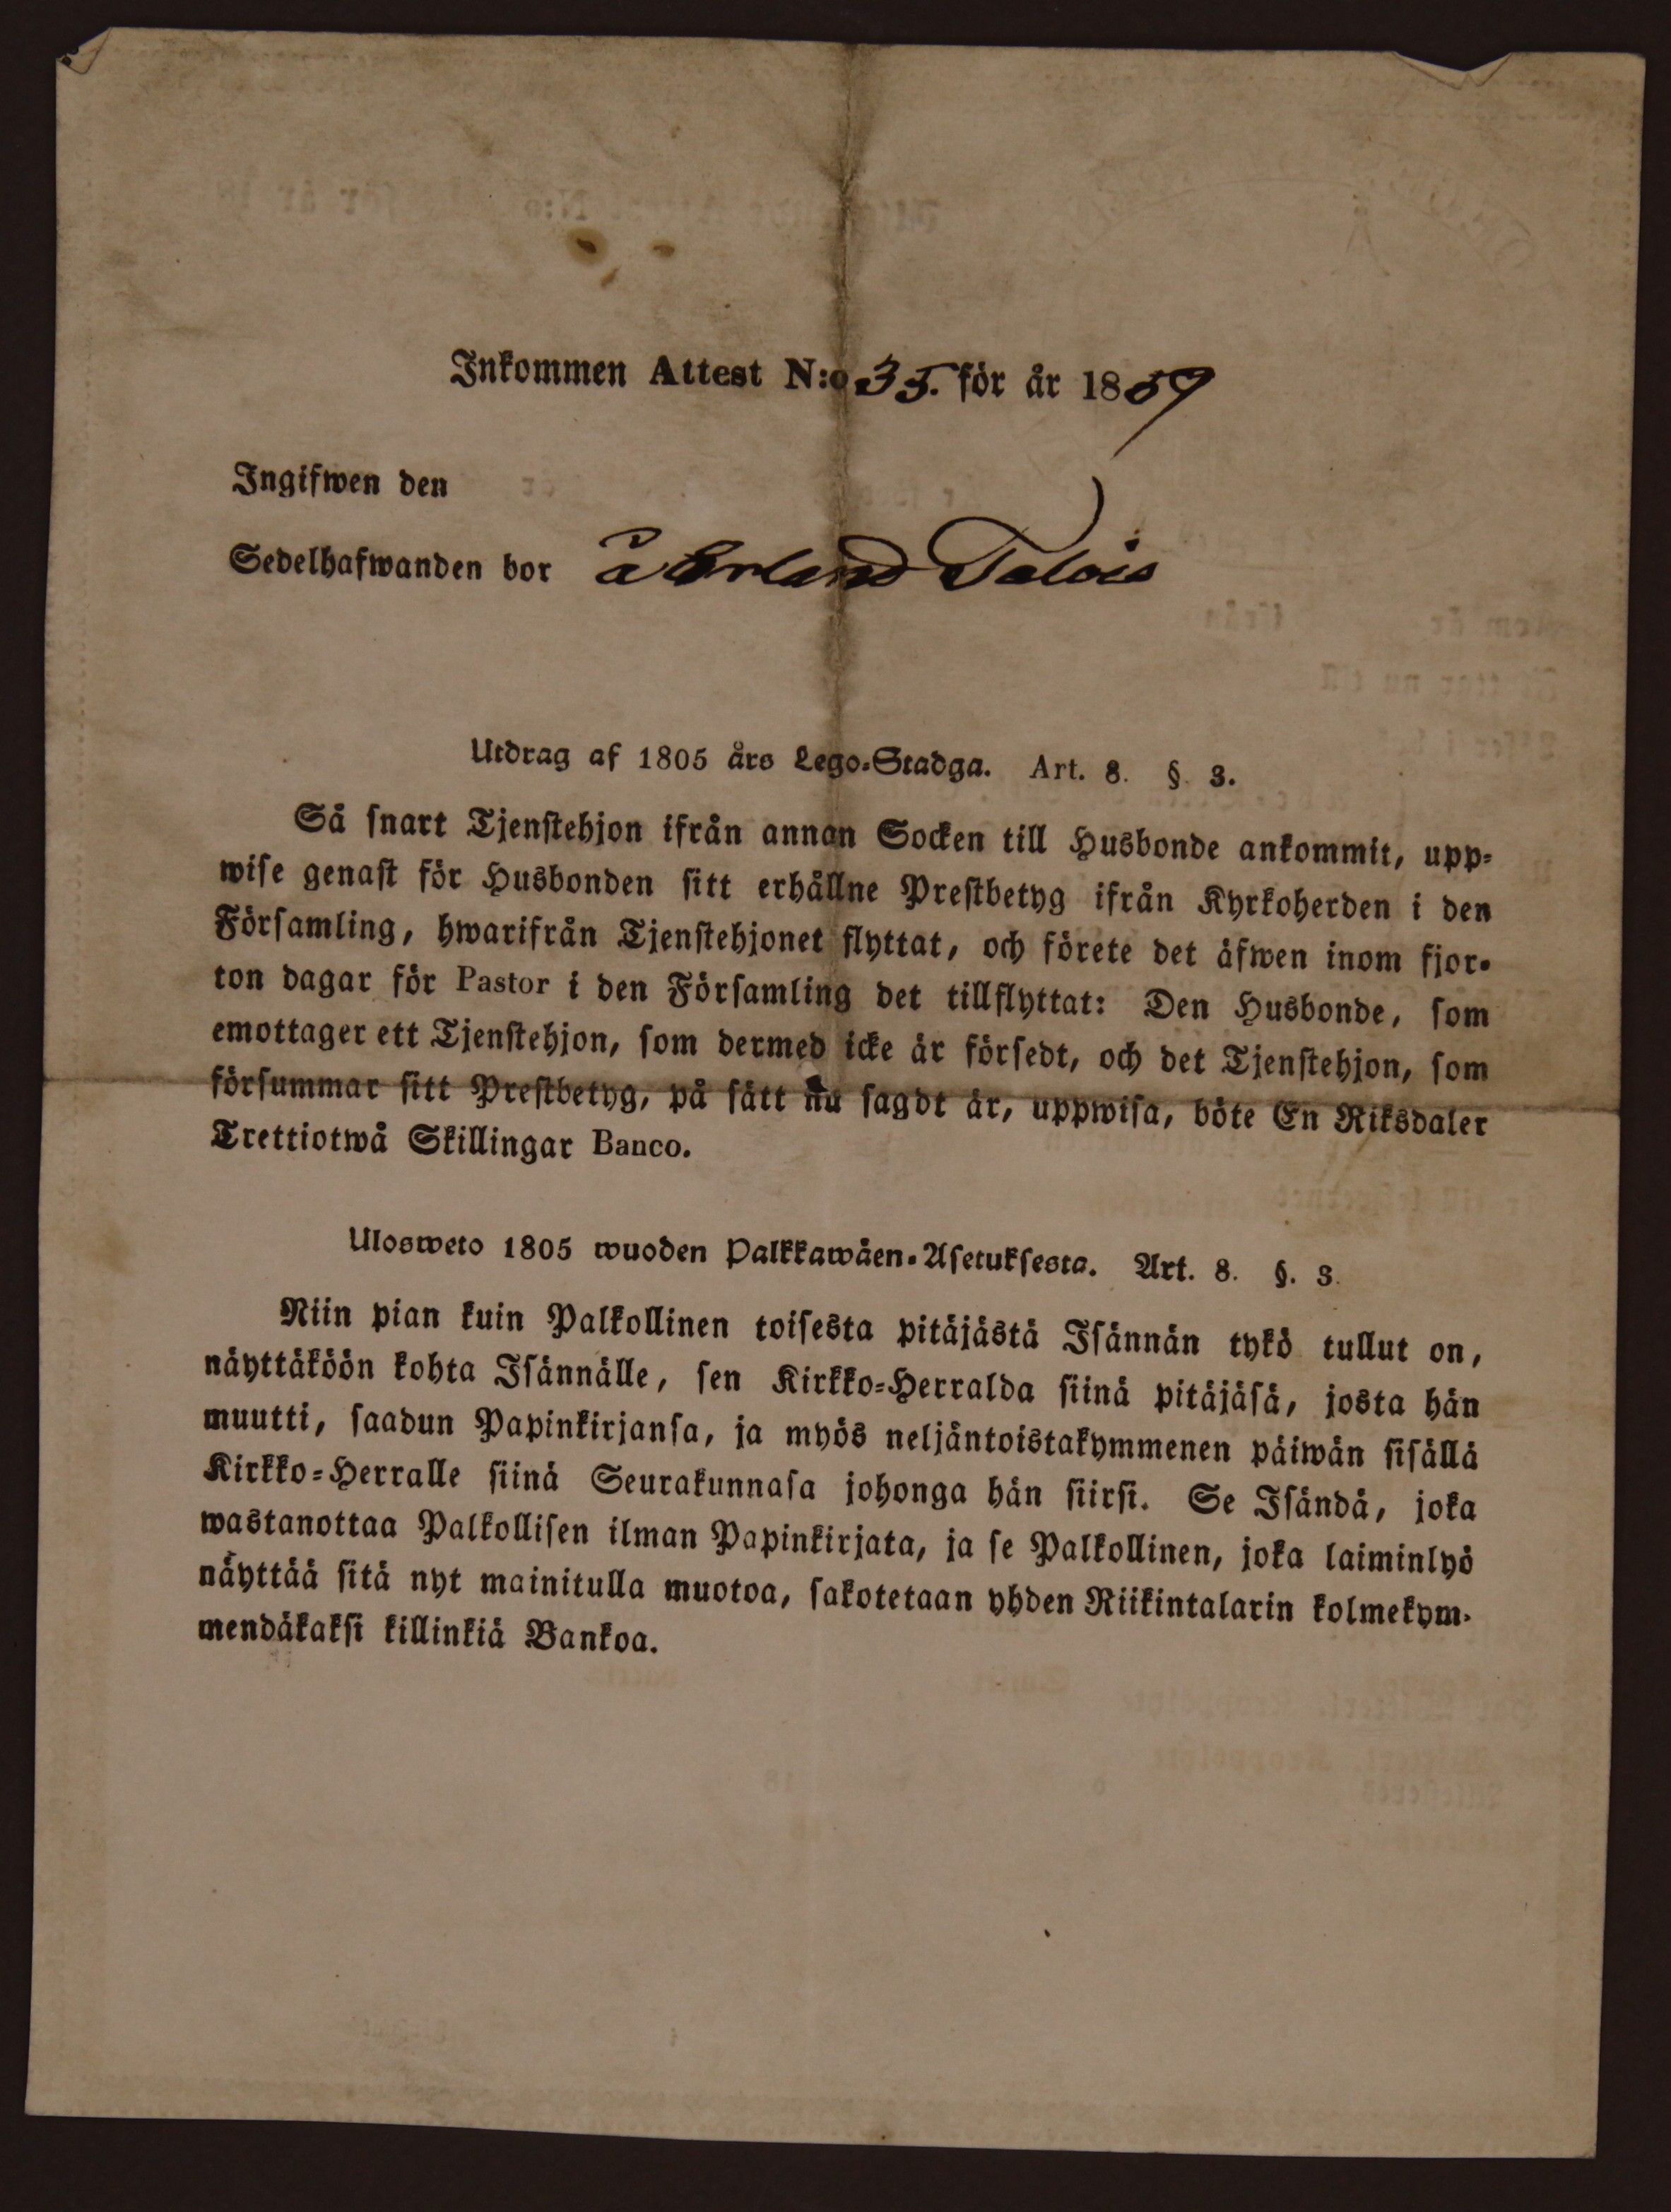 Inkommen Attest N:o 35. för år 1859
Ingifwen den
Sedelhafwanden bor å Erland Talois
Utdrag af 1805 års Lego-Stadga. Art. 8. § 3.
Så snart Tjenstehjon ifrån annan Socken till Husbonde ankommit, upp-
wise genast för Husbonden sitt erhållne Prestbetyg ifrån Kyrkoherden i den
Församling, hwarifrån Tjenstehjonet flyttat, och förete det äfwen inom fjor-
ton dagar för Pastor i den Församling det tillflyttat: Den Husbonde, som
emottager ett Tjenstehjon, som dermed icke är försedt, och det Tjenstehjon, som
försummar sitt Prestbetyg, på sätt nu sagdt är, uppwisa, böte En Riksdaler
Trettiotwå Skillingar Banco.
Ulosweto 1805 wuoden Palkkawäen-Asetuksesta. Art. 8. §. 3.
Niin pian kuin Palkollinen toisesta pitäjästä Isännän tykö tullut on,
näyttäköön kohta Isännälle, sen Kirkko-Herralda siinä pitäjäsä, josta hän
muutti, saadun Papinkirjansa, ja myös neljäntoistakymmenen päiwän sisällä
Kirkko-Herralle siinä Seurakunnasa johonga hän siirsi. Se Isändä, joka
wastanottaa Palkollisen ilman Papinkirjata, ja se Palkollinen, joka laiminlyö
näyttää sitä nyt mainitulla muotoa, sakotetaan yhden Riikintalarin kolmekym-
mendäkaksi killinkiä Bankoa.